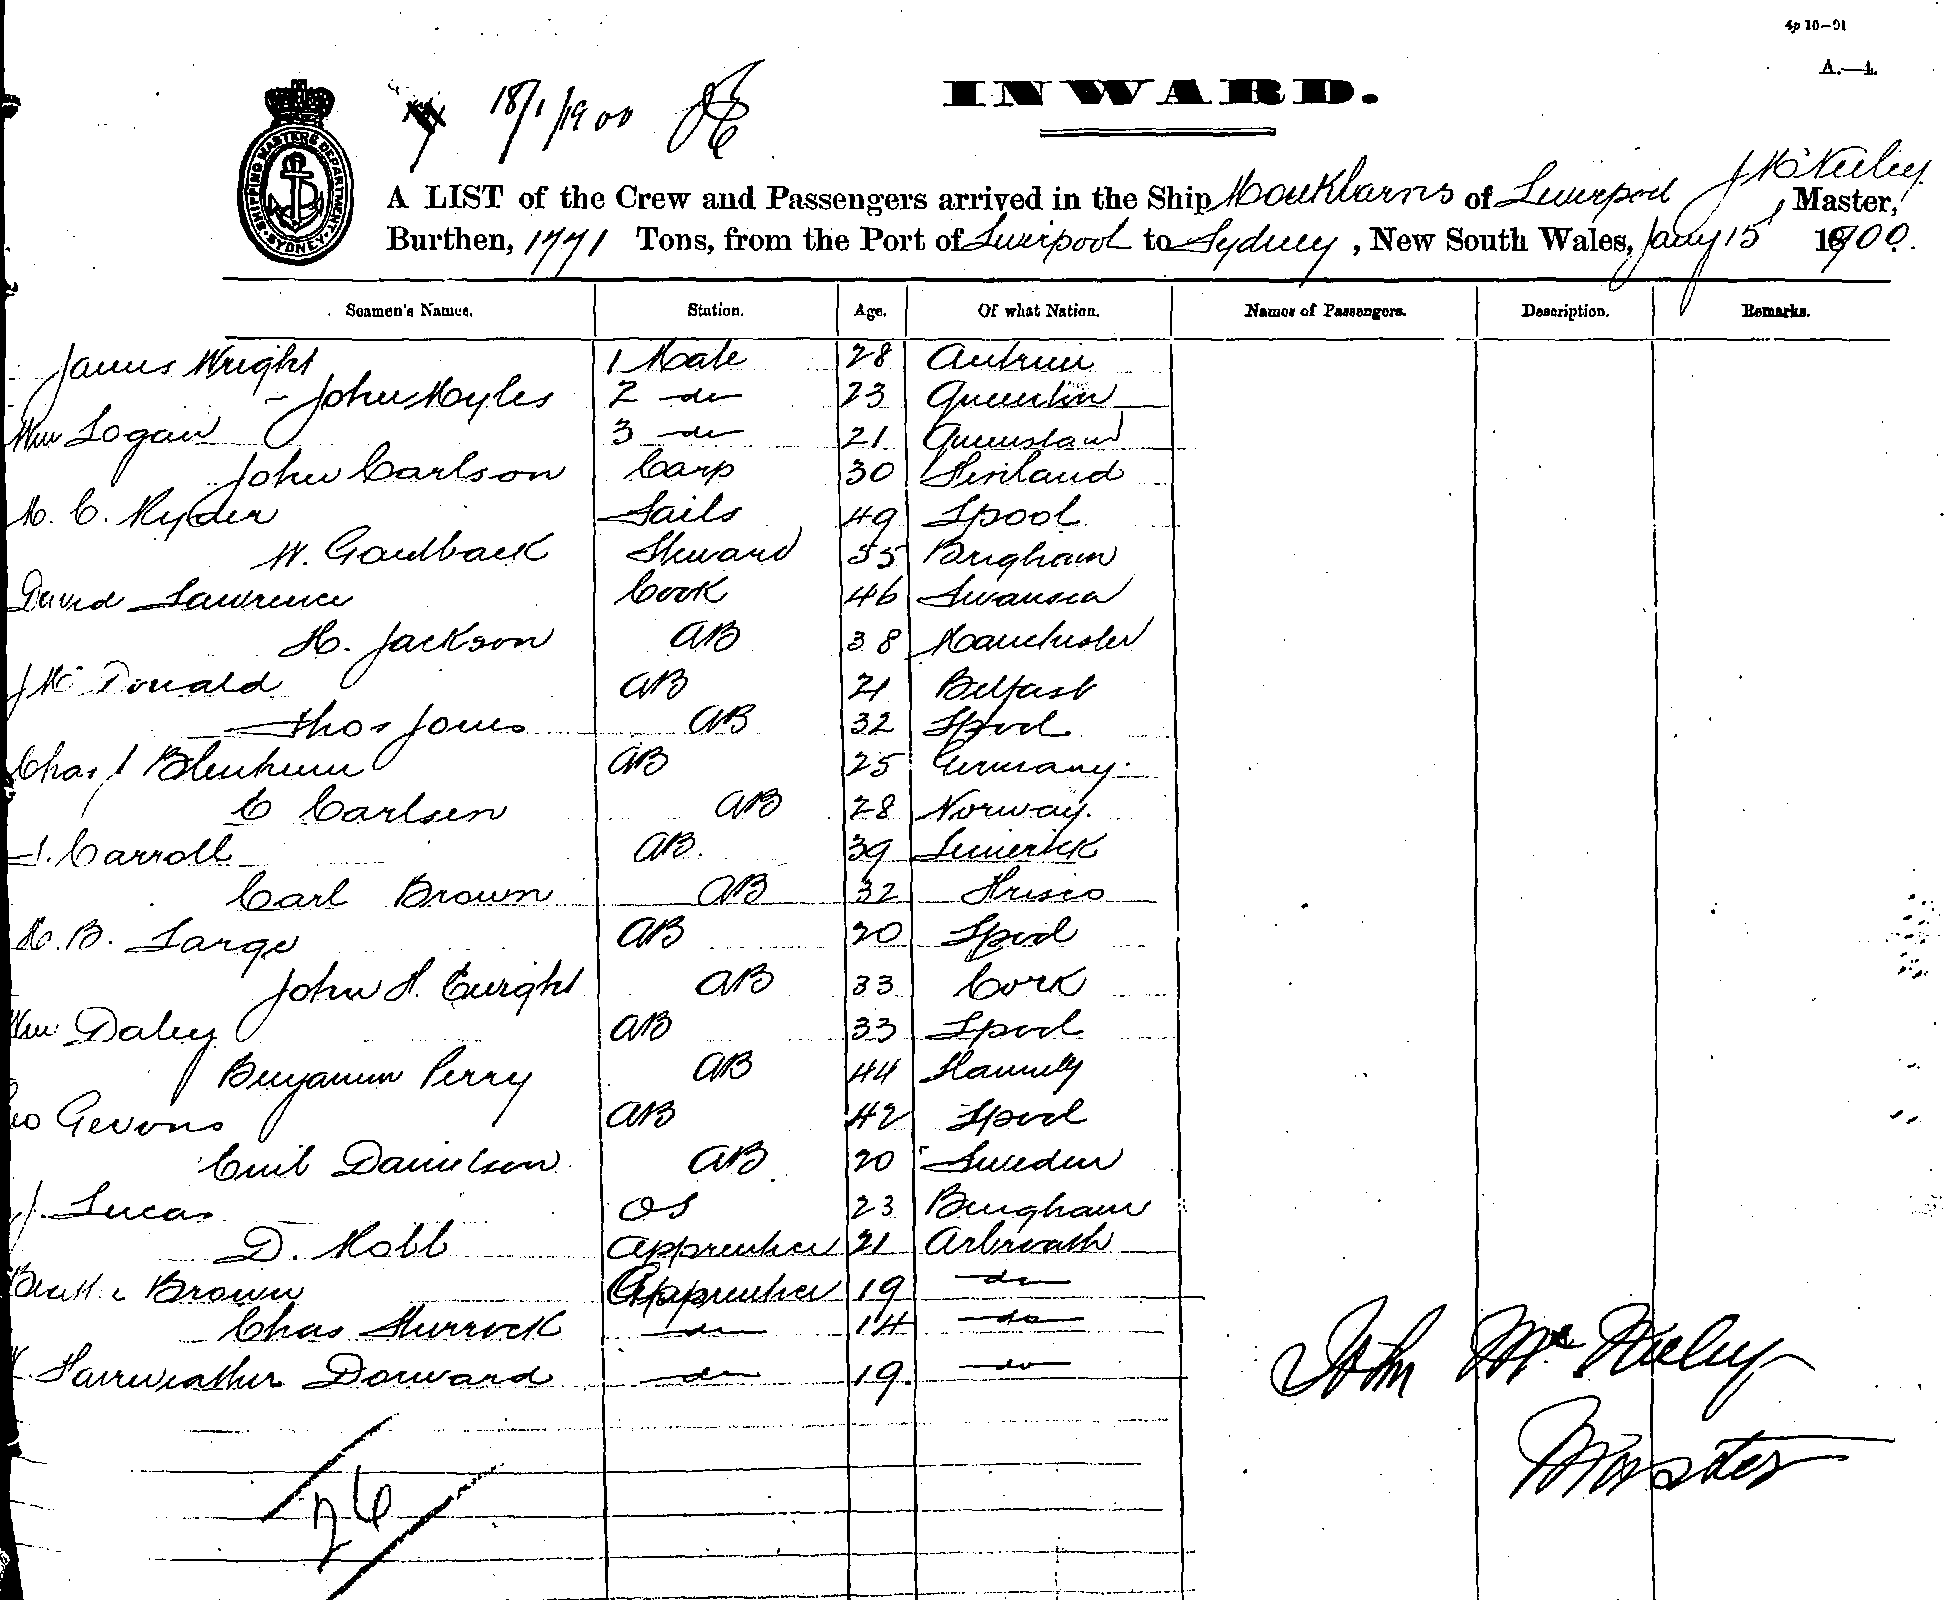 4p 10–01
A.—4.
18/1/1900
INWARD.
SHIPPING MASTERS DEPARTMENT SYDNEY
A LIST of the Crew and Passengers arrived in the Ship Monkbarns of Liverpool J McNeiley Master,
Burthen, 1771 Tons, from the Port of Liverpool to Sydney, New South Wales, Jany 15 1900.
Seamen's Names. Station. Age. Of what Nation. Names of Passengers. Description. Remarks.
James Wright 1 Mate 28 Antrim
John Myles 2 do 23
Wm Logan 3 do 21 Queensland
John Carlson Carp 30 Finland
M. C. Ryder Sails 49 Lpool
W. Goulback Steward 35 Brigham
David Lawrence Cook 46 Swansea
H. Jackson AB 38 Manchester
J Mc Donald AB 21 Belfast
Thos Jones AB 32 Lpool
Chas J Blenheim AB 25 Germany.
C Carlsen AB 28 Norway.
J. Carroll AB. 39 Limerick
Carl Brown AB 32 Frisco
H. B. Large AB 20 Lpool
John H. Enright AB 33 Cork
Wm Daley AB 33 Lpool
Benjamin Perry AB 44 Llanelly
Geo Gevons AB 42 Lpool
Emil Danielson AB 20 Sweden
J. Lucas OS 23 Bingham
D. Robb Apprentice 21 Arbroath
Brown Apprentice 19 do
Chas Sturrock do 14 do
Fairweather Dorward do 19. do
John McNeiley
Master
26